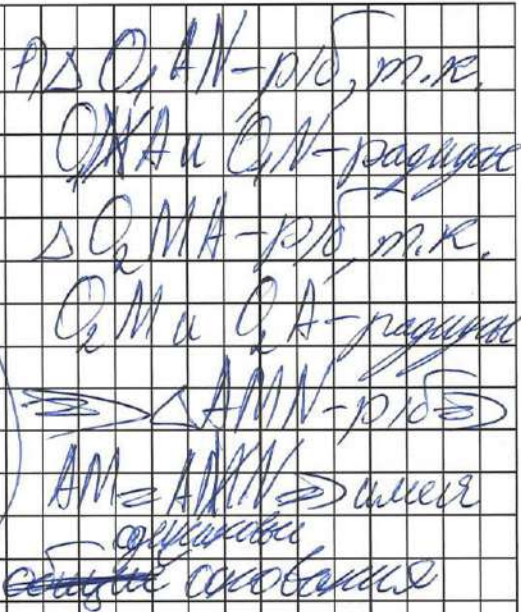 1) △ O₁AN - р/б, т.к.
O₁A и O₁N - радиусы
△ O₂MA - р/б, т.к.
O₂M и O₂A - радиусы
⇒ △AMN - р/б ⇒
AM = AN ⇒ имея
одинаковые
общие основания